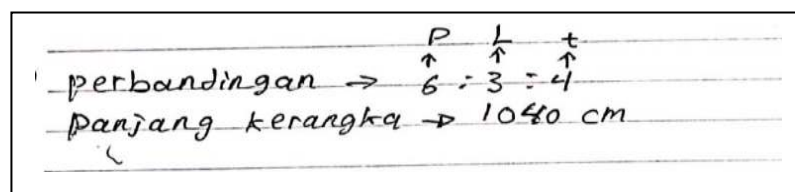 P L t
↑ ↑ ↑
perbandingan → 6 : 3 : 4
panjang kerangka → 1040 cm